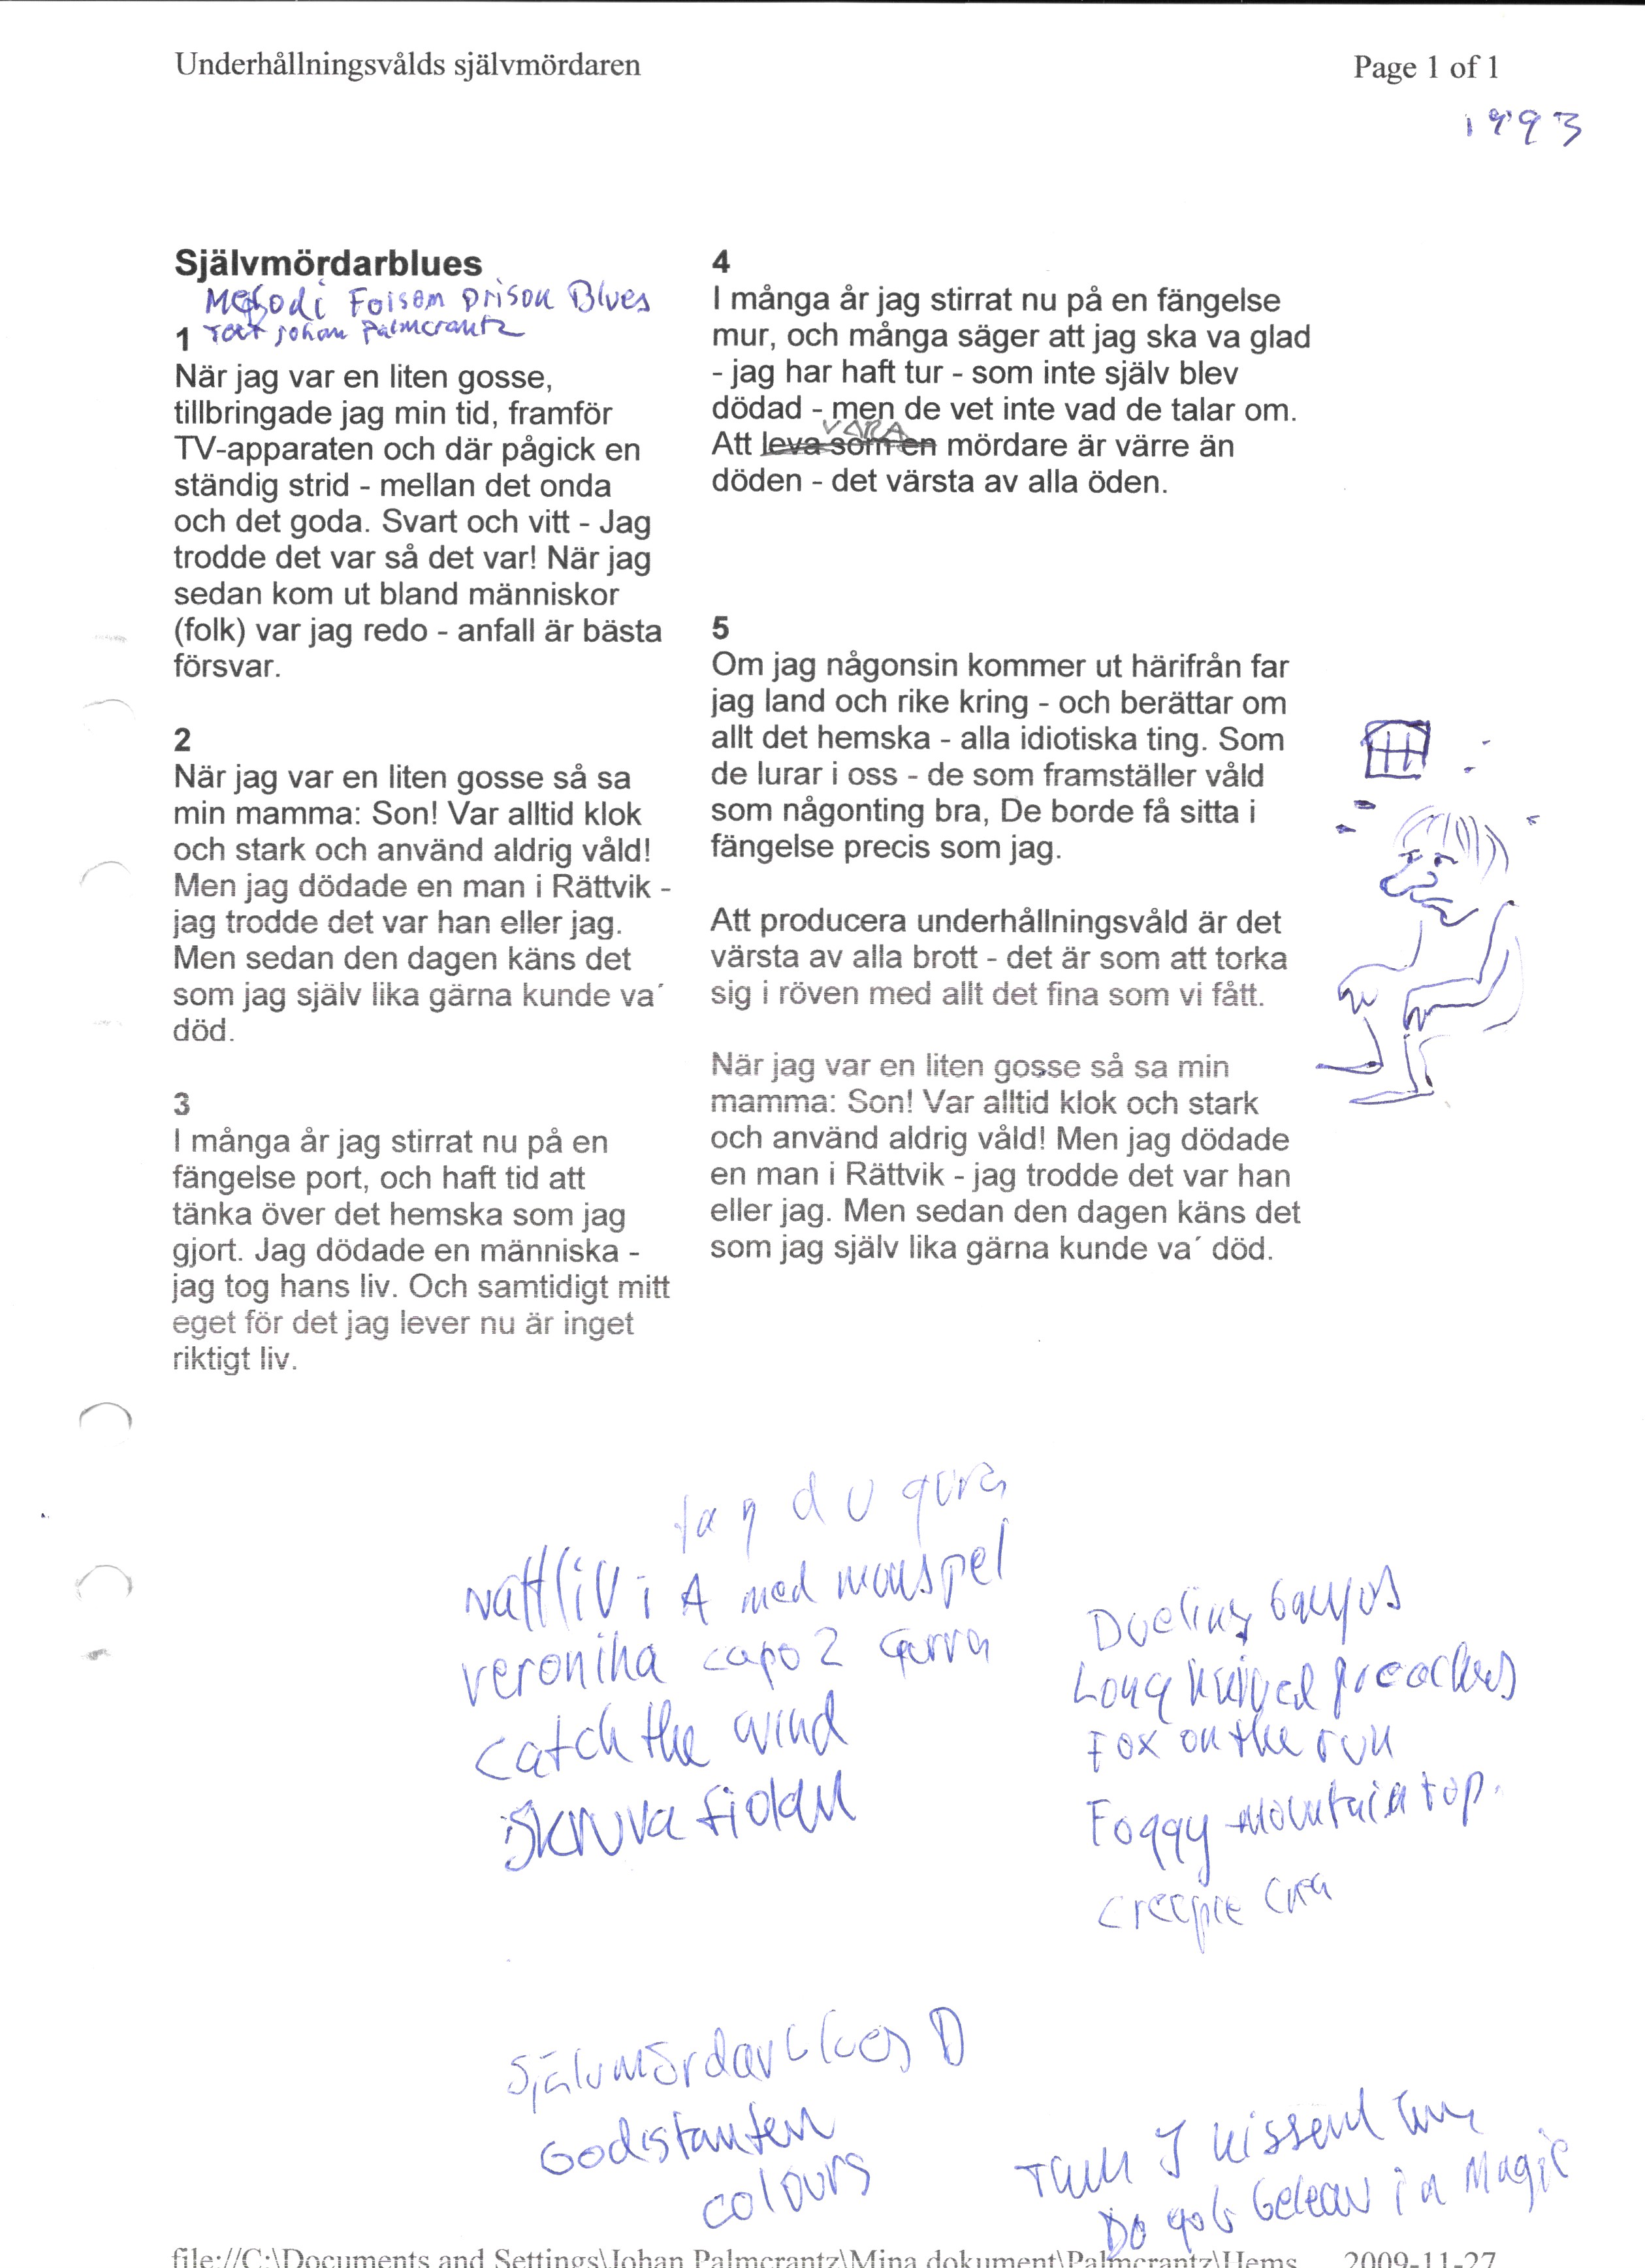 Underhållningsvålds självmördaren
Page 1 of 1
1993
Självmördarblues
Melodi Folsom prison Blues
1 Text Johan Palmcrantz
När jag var en liten gosse,
tillbringade jag min tid, framför
TV-apparaten och där pågick en
ständig strid - mellan det onda
och det goda. Svart och vitt - Jag
trodde det var så det var! När jag
sedan kom ut bland människor
(folk) var jag redo - anfall är bästa
försvar.
2
När jag var en liten gosse så sa
min mamma: Son! Var alltid klok
och stark och använd aldrig våld!
Men jag dödade en man i Rättvik -
jag trodde det var han eller jag.
Men sedan den dagen käns det
som jag själv lika gärna kunde va´
död.
3
I många år jag stirrat nu på en
fängelse port, och haft tid att
tänka över det hemska som jag
gjort. Jag dödade en människa -
jag tog hans liv. Och samtidigt mitt
eget för det jag lever nu är inget
riktigt liv.
4
I många år jag stirrat nu på en fängelse
mur, och många säger att jag ska va glad
- jag har haft tur - som inte själv blev
dödad - men de vet inte vad de talar om.
VARA
Att leva som en mördare är värre än
döden - det värsta av alla öden.
5
Om jag någonsin kommer ut härifrån far
jag land och rike kring - och berättar om
allt det hemska - alla idiotiska ting. Som
de lurar i oss - de som framställer våld
som någonting bra, De borde få sitta i
fängelse precis som jag.
Att producera underhållningsvåld är det
värsta av alla brott - det är som att torka
sig i röven med allt det fina som vi fått.
När jag var en liten gosse så sa min
mamma: Son! Var alltid klok och stark
och använd aldrig våld! Men jag dödade
en man i Rättvik - jag trodde det var han
eller jag. Men sedan den dagen käns det
som jag själv lika gärna kunde va´ död.
Nattliv i A med munspel
veronika capo 2
catch the wind
skruva fiolen
Dueling banjos
Fox on the run
Foggy mountain top.
Självmördarblues D
Godistanten
colours
I kissed
in Magic
file://C:\Documents and Settings\Johan Palmcrantz\Mina dokument\Palmcrantz\Hems...
2009-11-27